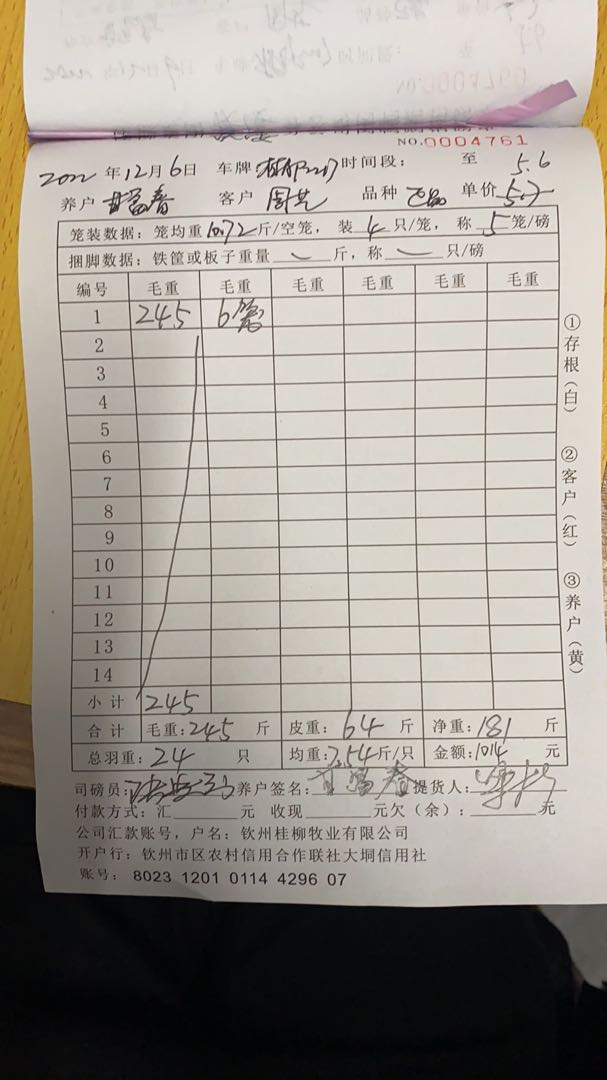 NO.0004761
2022年12月6日 车牌 时间段: 至
5.6
养户 甘富春 客户 周 品种 正品 单价 5.7
笼装数据: 笼均重10.72斤/空笼, 装4只/笼, 称5笼/磅
捆脚数据: 铁筐或板子重量 斤, 称 只/磅
编号 毛重 毛重 毛重 毛重 毛重 毛重
1 245 6笼
2
3
4
5
6
7
8
9
10
11
12
13
14
小计 245
合计 毛重:245斤 皮重: 64斤 净重:181斤
总羽重: 24 只 均重:7.54斤/只 金额:1014元
司磅员: 养户签名: 甘富春 提货人:
付款方式: 汇 元 收现 元欠(余): 元
公司汇款账号, 户名: 钦州桂柳牧业有限公司
开户行: 钦州市区农村信用合作联社大垌信用社
账号: 8023 1201 0114 4296 07
①存根(白) ②客户(红) ③养户(黄)